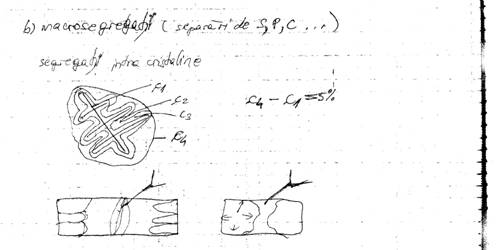 b) macrosegregații (separări de S, P, C ...)
segregații intra cristaline
C1
C2
C3
C4
C4 - C1 = 5%